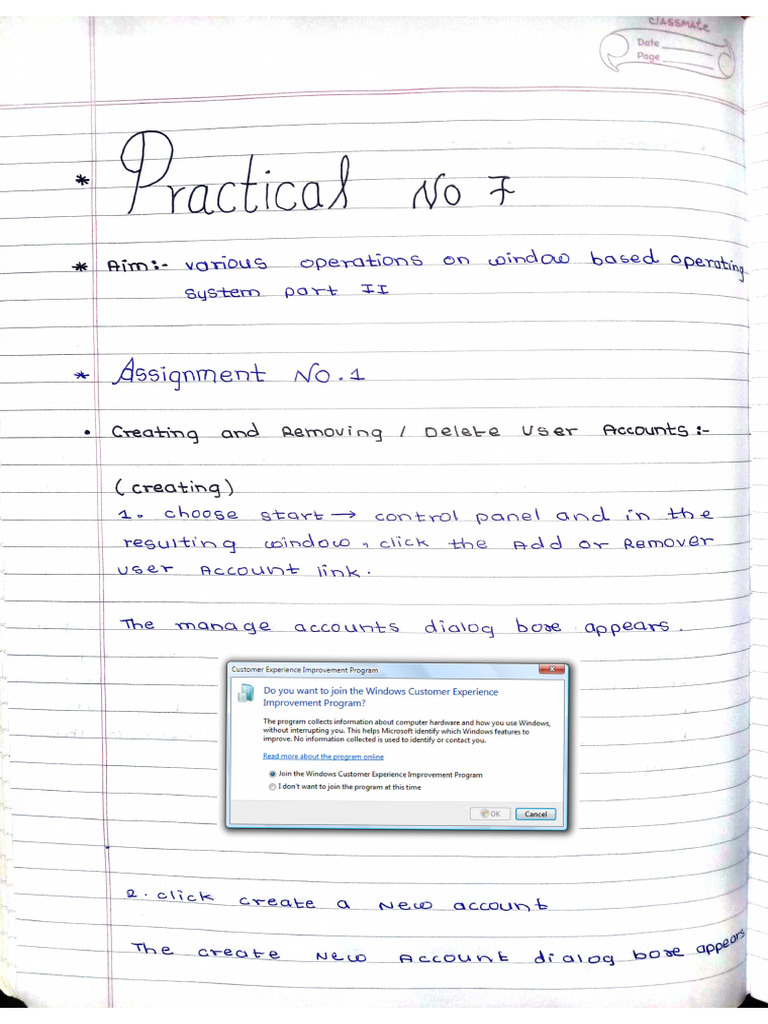 classmate
Date
Page
* Practical No 7
* Aim:- various operations on window based operating
system part II
* Assignment No.1
• Creating and Removing / Delete User Accounts:-
(creating)
1. choose start → control panel and in the
resulting window, click the Add or Remover
user Account link.
The manage accounts dialog boxe appears.
Customer Experience Improvement Program
Do you want to join the Windows Customer Experience
Improvement Program?
The program collects information about computer hardware and how you use Windows,
without interrupting you. This helps Microsoft identify which Windows features to
improve. No information collected is used to identify or contact you.
Read more about the program online
Join the Windows Customer Experience Improvement Program
I don't want to join the program at this time
OK Cancel
2. click create a New account
The create New Account dialog boxe appears